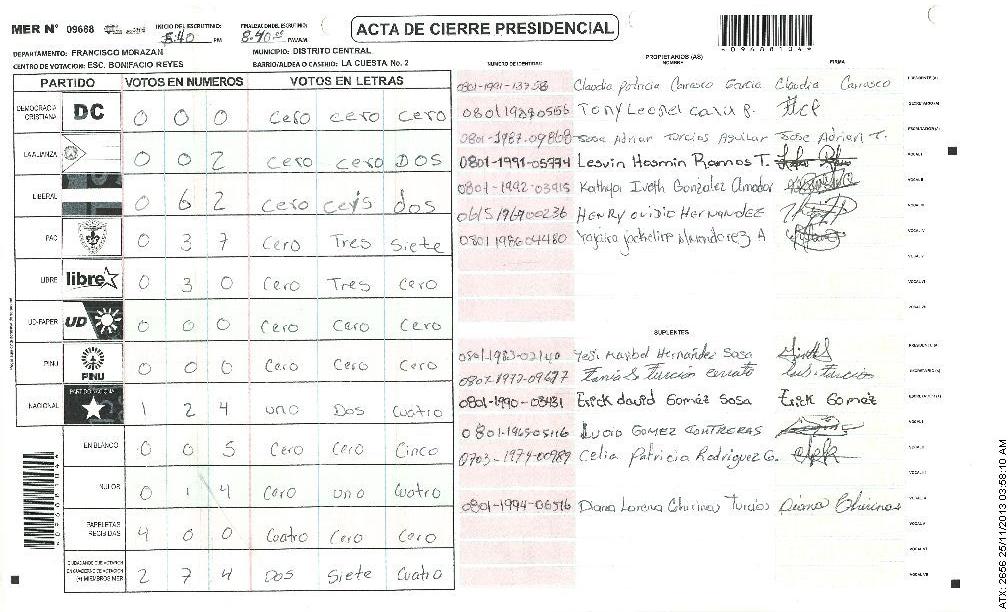 MER N° 09688 INICIO DEL ESCRUTINIO: 5:40 PM FINALIZACION DEL ESCRUTINIO: 8:40
ACTA DE CIERRE PRESIDENCIAL
DEPARTAMENTO: FRANCISCO MORAZAN MUNICIPIO: DISTRITO CENTRAL
CENTRO DE VOTACION: ESC. BONIFACIO REYES BARRIO/ALDEA O CASERIO: LA CUESTA No. 2
PARTIDO VOTOS EN NUMEROS VOTOS EN LETRAS
DEMOCRACIA CRISTIANA DC 0 0 0 cero cero cero
LA ALIANZA 0 0 2 cero cero DOS
LIBERAL 0 6 2 cero ceis dos
PAC 0 3 7 Cero Tres Siete
LIBRE libre 0 3 0 Cero Tres Cero
UD-FAPER UD 0 0 0 Cero Cero Cero
PINU PINU 0 0 0 Cero Cero Cero
NACIONAL 1 2 4 uno Dos cuatro
EN BLANCO 0 0 5 Cero Cero Cinco
NULOS 0 1 4 Cero uno Cuatro
PAPELETAS RECIBIDAS 4 0 0 Cuatro Cero Cero
CIUDADANOS QUE VOTARON EN CUADERNO DE VOTACION (+) MIEMBROS MER 2 7 4 Dos Siete Cuatro
NUMERO DE IDENTIDAD PROPIETARIOS (AS) NOMBRE FIRMA
0801-1991-13758 Claudia Patricia Carrasco Garcia Claudia Carrasco PRESIDENTE(A)
Tony Leonel SECRETARIO(A)
0801-1987-09868 Jose Adrian Turcios Aguilar Jose Adrian T. ESCRUTADOR(A)
0801-1991-05974 Lesvin Hosmin Ramos T. VOCAL I
0801-1992-03915 Kathya Iveth Gonzalez Amador VOCAL II
0615196400236 HENRY OVIDIO HERNANDEZ VOCAL III
0801198604480 VOCAL IV
VOCAL V
VOCAL VI
VOCAL VII
SUPLENTES
0801-1983-02140 Yesi Maribel Hernández Sosa PRESIDENTE(A)
SECRETARIO(A)
0801-1990-03431 Erick david Goméz Sosa Erick Gomez ESCRUTADOR(A)
0801-1965-05116 LUCIO GOMEZ CONTRERAS VOCAL I
0703-1974-00989 Celia Patricia Rodriguez G. VOCAL II
VOCAL III
0801-1994-06516 Diana Lorena Chirinos Turcios Diana Chirinos VOCAL IV
VOCAL V
VOCAL VI
VOCAL VII
ATX: 2656 25/11/2013 03:58:10 AM